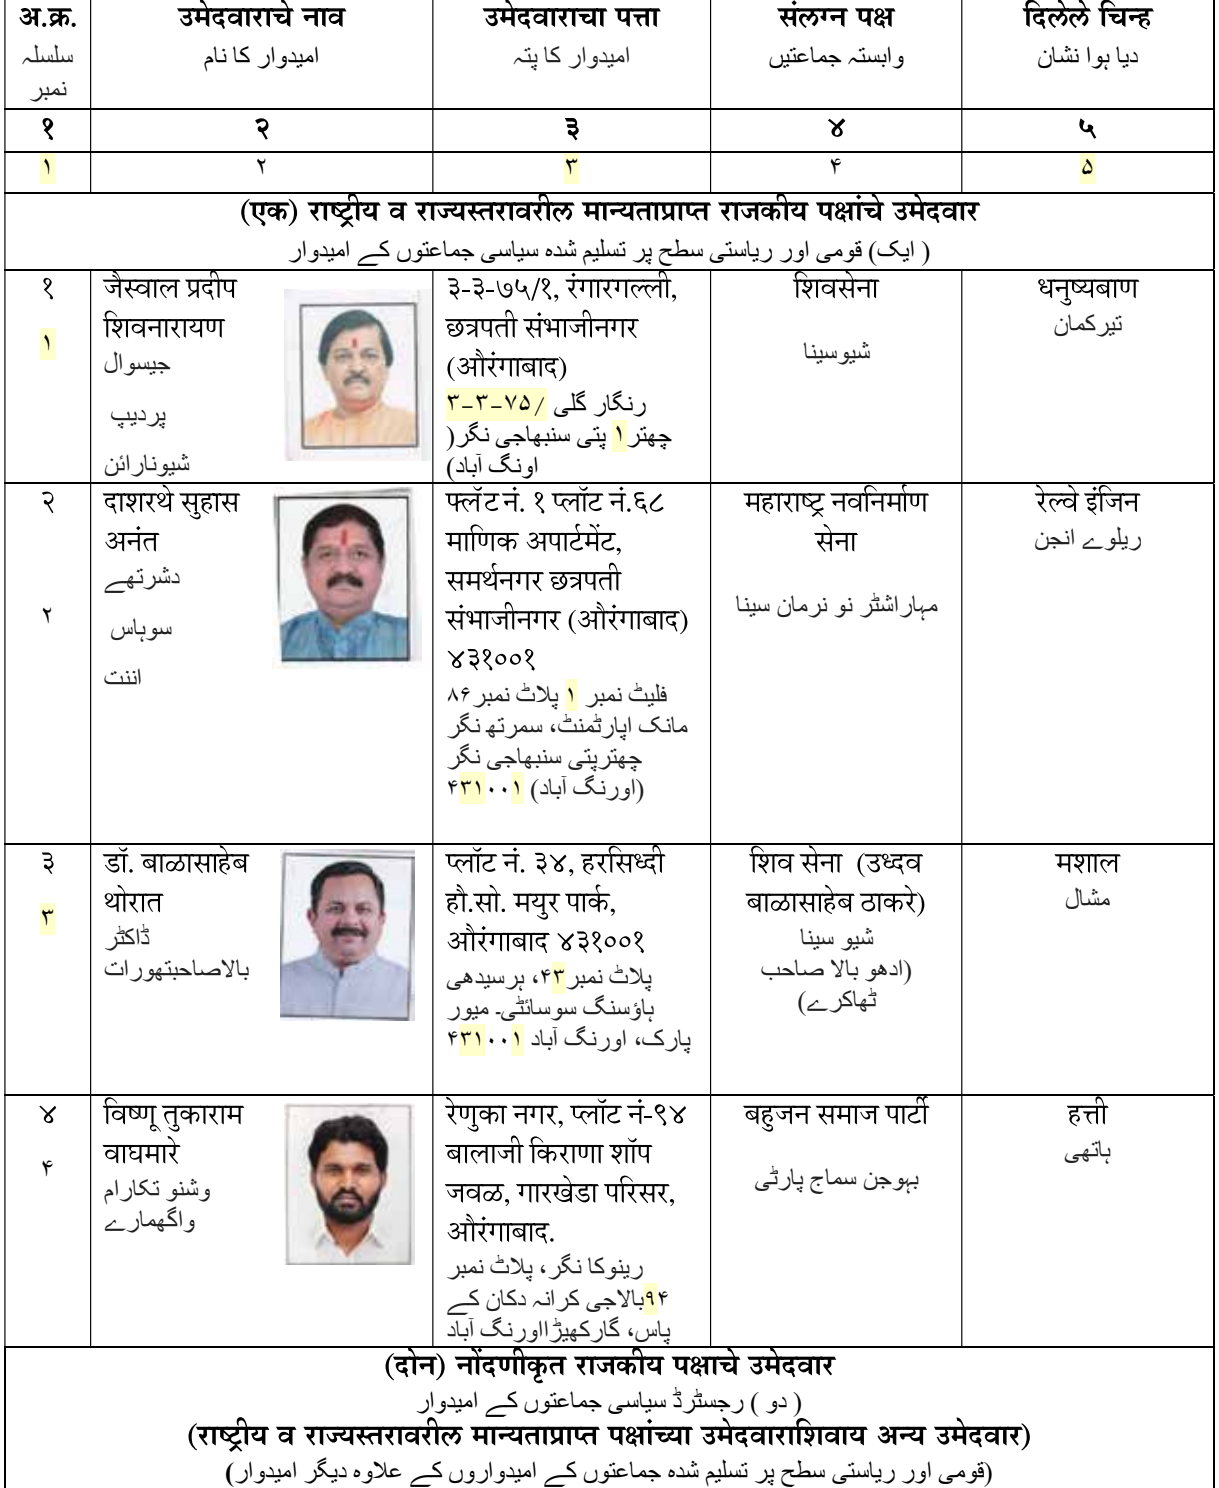 अ.क्र.
سلسلہ
نمبر
उमेदवाराचे नाव
امیدوار کا نام
उमेदवाराचा पत्ता
امیدوار کا پتہ
संलग्न पक्ष
وابستہ جماعتیں
दिलेले चिन्ह
دیا ہوا نشان
१ २ ३ ४ ५
۱ ۲ ۳ ۴ ۵
(एक) राष्ट्रीय व राज्यस्तरावरील मान्यताप्राप्त राजकीय पक्षांचे उमेदवार
( ایک) قومی اور ریاستی سطح پر تسلیم شدہ سیاسی جماعتوں کے امیدوار
१
۱
जैस्वाल प्रदीप
शिवनारायण
جیسوال
پردیپ
شیونارائن
३-३-७५/१, रंगारगल्ली,
छत्रपती संभाजीनगर
(औरंगाबाद)
رنگار گلی /۳-۳-۷۵
چھتر۱ پتی سنبھاجی نگر(
اونگ آباد)
शिवसेना
شیوسینا
धनुष्यबाण
تیرکمان
२
۲
दाशरथे सुहास
अनंत
دشرتھے
سوہاس
اننت
फ्लॅट नं. १ प्लॉट नं.६८
माणिक अपार्टमेंट,
समर्थनगर छत्रपती
संभाजीनगर (औरंगाबाद)
४३१००१
فلیٹ نمبر ۱ پلاٹ نمبر۸۶
مانک اپارٹمنٹ، سمرتھ نگر
چھترپتی سنبھاجی نگر
(اورنگ آباد) ۴۳۱۰۰۱
महाराष्ट्र नवनिर्माण
सेना
مہاراشٹر نو نرمان سینا
रेल्वे इंजिन
ریلوے انجن
३
۳
डॉ. बाळासाहेब
थोरात
ڈاکٹر
بالاصاحبتھورات
प्लॉट नं. ३४, हरसिध्दी
हौ.सो. मयुर पार्क,
औरंगाबाद ४३१००१
پلاٹ نمبر۴۳، ہرسیدھی
ہاؤسنگ سوسائٹی۔ میور
پارک، اورنگ آباد ۴۳۱۰۰۱
शिव सेना (उध्दव
बाळासाहेब ठाकरे)
شیو سینا
(ادھو بالا صاحب
ٹھاکرے)
मशाल
مشال
४
۴
विष्णू तुकाराम
वाघमारे
وشنو تکارام
واگھمارے
रेणुका नगर, प्लॉट नं-९४
बालाजी किराणा शॉप
जवळ, गारखेडा परिसर,
औरंगाबाद.
رینوکا نگر، پلاٹ نمبر
۹۴بالاجی کرانہ دکان کے
پاس، گارکھیڑااورنگ آباد
बहुजन समाज पार्टी
بہوجن سماج پارٹی
हत्ती
ہاتھی
(दोन) नोंदणीकृत राजकीय पक्षाचे उमेदवार
( دو ) رجسٹرڈ سیاسی جماعتوں کے امیدوار
(राष्ट्रीय व राज्यस्तरावरील मान्यताप्राप्त पक्षांच्या उमेदवाराशिवाय अन्य उमेदवार)
(قومی اور ریاستی سطح پر تسلیم شدہ جماعتوں کے امیدواروں کے علاوہ دیگر امیدوار)